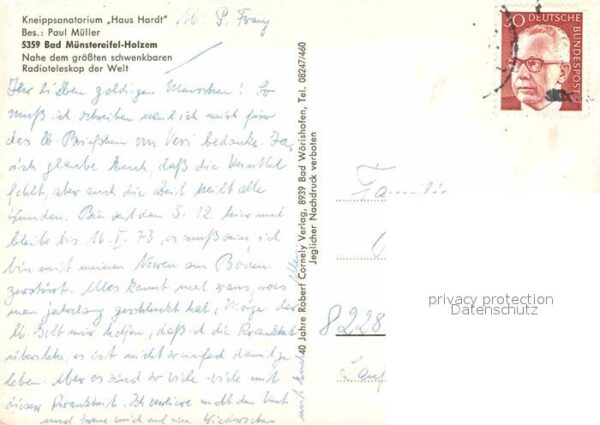 Kneippsanatorium „Haus Hardt"
Bes.: Paul Müller
5359 Bad Münstereifel-Holzem
Nahe dem größten schwenkbaren
Radioteleskop der Welt
P. Franz
Ihr lieben goldigen Menschen! So
muß ich schreiben und ich mich für
das lb. Briefchen von Vesi bedanke. Ja,
ich glaube Euch, daß die
fehlt, aber auch die Zeit heilt alle
Wunden. Bin seit dem 5. 12. hier und
bleibe bis 16. I. 73, es muß sein, ich
bin mit meinen Nerven am Boden
zerstört. Alles kommt mal raus, was
man jahrelang geschluckt hat, Möge der
lb. Gott mir helfen, daß ich die Krankheit
überstehe, es ist nicht einfach damit zu
leben. Aber es sind so viele - viele mit
dieser Krankheit. Ich verliere nicht den Mut
und freue mich auf ein Wiedersehen
mit Euch
40 Jahre Robert Cornely Verlag, 8939 Bad Wörishofen, Tel. 08247/460
Jeglicher Nachdruck verboten
30 DEUTSCHE
BUNDESPOST
Familie
8228
privacy protection
Datenschutz